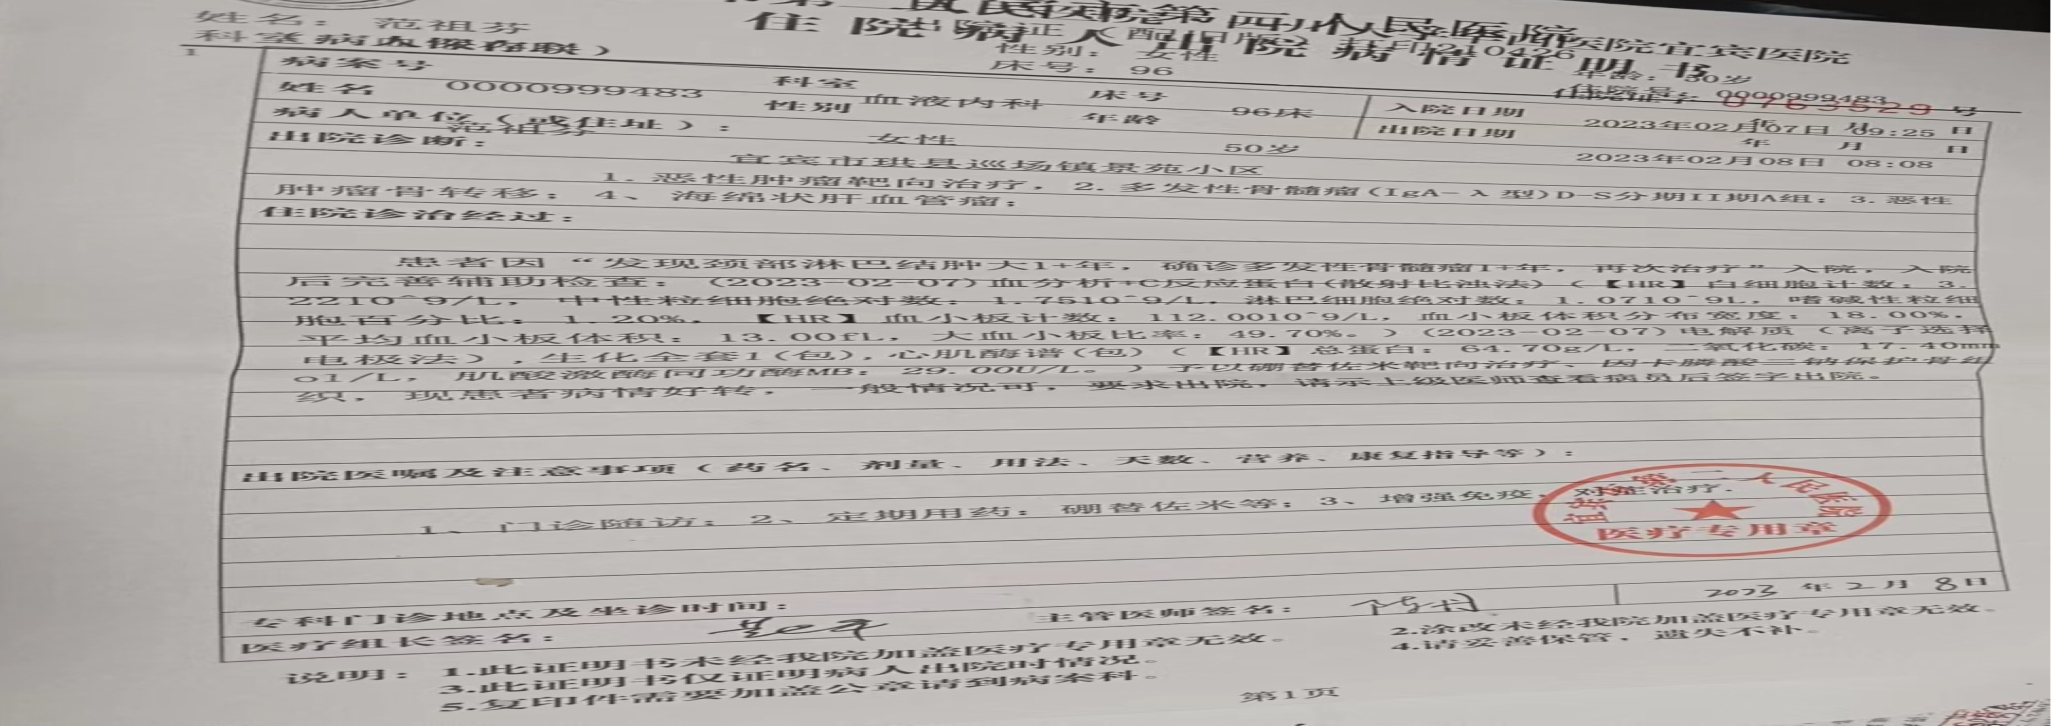 姓名：范祖芬
住院病人出院病情证明书
科室病人保存联）
性别：女性
床号：96
年龄：50岁
0000999483
0763529 号
1
病案号 0000999483 科室 血液内科 床号 96床 入院日期 2023年02月07日 09:25
姓名 范祖芬 性别 女性 年龄 50岁 出院日期 2023年02月08日 08:08
病人单位（或住址）：宜宾市珙县巡场镇景苑小区
出院诊断：
1. 恶性肿瘤靶向治疗，2. 多发性骨髓瘤(IgA-λ型)D-S分期II期A组；3. 恶性
肿瘤骨转移；4、海绵状肝血管瘤；
住院诊治经过：
患者因“发现颈部淋巴结肿大1+年，确诊多发性骨髓瘤1+年，再次治疗”入院，入院
后完善辅助检查：(2023-02-07)血分析+C反应蛋白(散射比浊法)（【HR】白细胞计数：3.
2210^9/L，中性粒细胞绝对数：1.7510^9/L，淋巴细胞绝对数：1.0710^9L，嗜碱性粒细
胞百分比：1.20%，【HR】血小板计数：112.0010^9/L，血小板体积分布宽度：18.00%，
平均血小板体积：13.00fL，大血小板比率：49.70%。）(2023-02-07)电解质（离子选择
电极法）,生化全套1(包),心肌酶谱(包)（【HR】总蛋白：64.70g/L，二氧化碳：17.40mm
ol/L，肌酸激酶同功酶MB：29.00U/L。）予以硼替佐米靶向治疗、因卡膦酸二钠保护骨组
织，现患者病情好转，一般情况可，要求出院，请示上级医师查看病员后签字出院。
出院医嘱及注意事项（药名、剂量、用法、天数、营养、康复指导等）：
1、门诊随访；2、定期用药：硼替佐米等；3、增强免疫，对症治疗.
宜宾市第二人民医院
医疗专用章
专科门诊地点及坐诊时间：
主管医师签名：
2023 年 2 月 8 日
医疗组长签名：
说明：1.此证明书未经我院加盖医疗专用章无效。 2.涂改未经我院加盖医疗专用章无效。
3.此证明书仅证明病人出院时情况。 4.请妥善保管，遗失不补。
5.复印件需要加盖公章请到病案科。
第1页